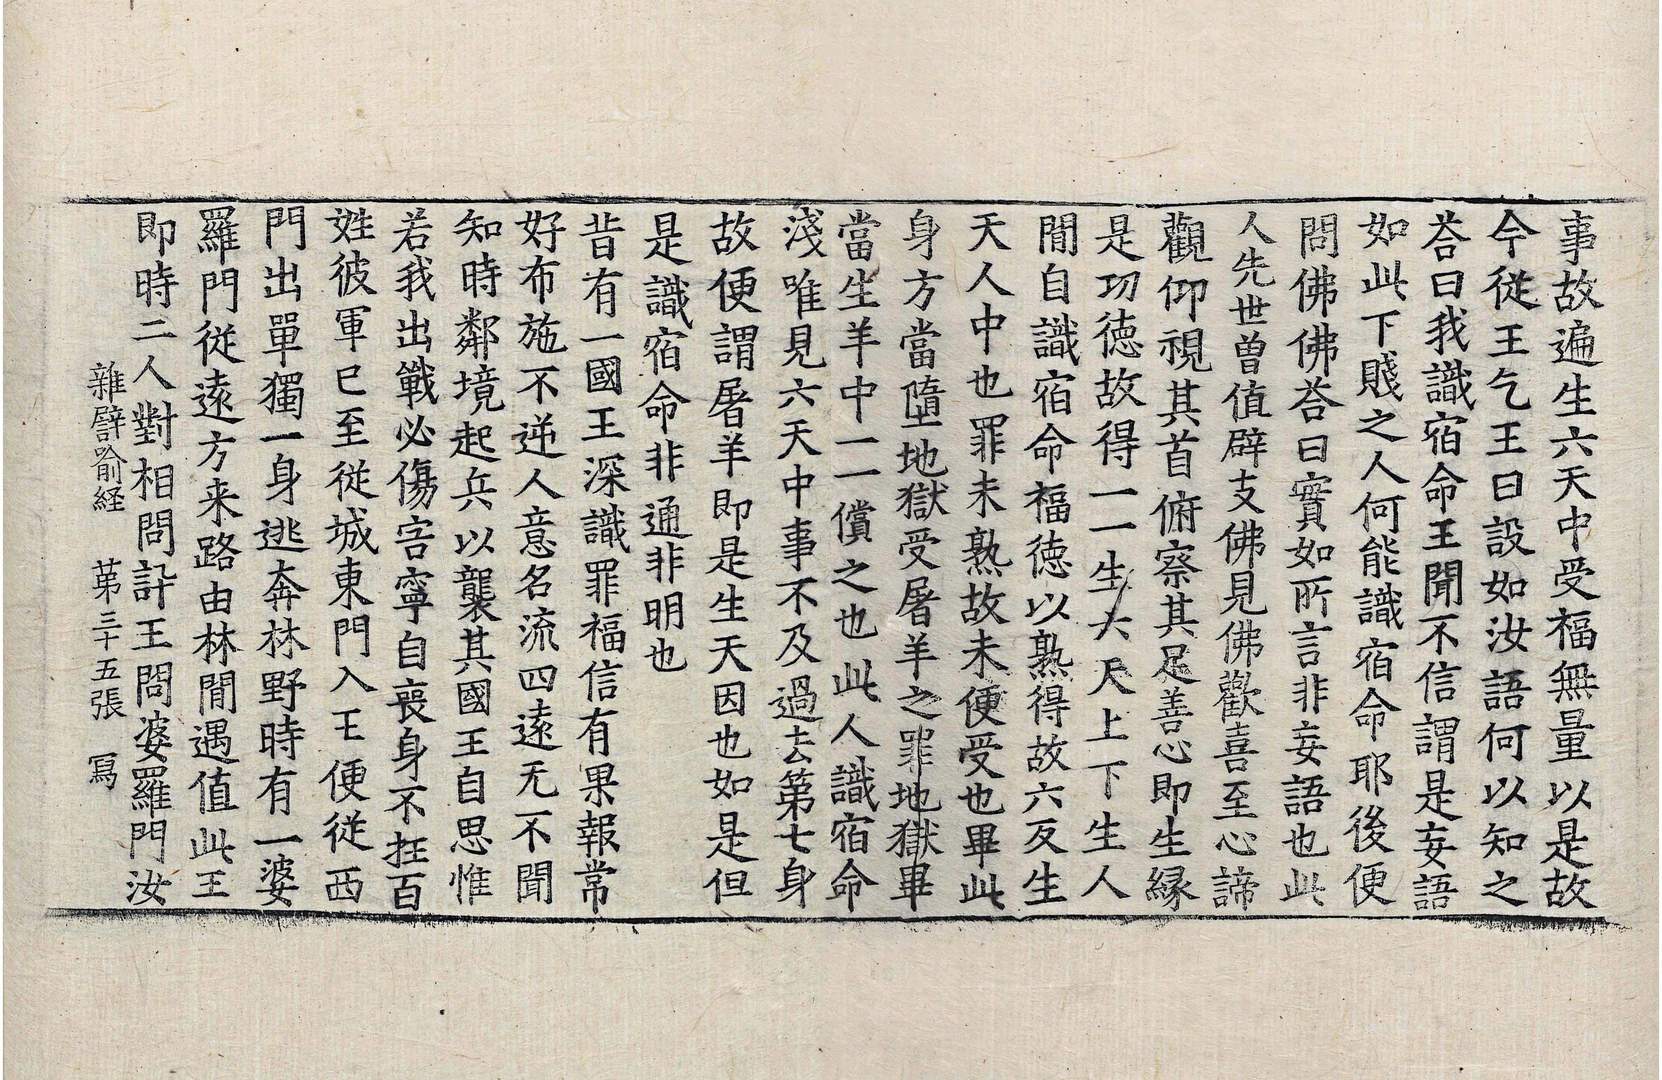 事故遍生六天中受福無量以是故
今從王乞王曰設如汝語何以知之
荅曰我識宿命王聞不信謂是妄語
如此下賤之人何能識宿命耶後便
問佛佛荅曰實如所言非妄語也此
人先世曾值辟支佛見佛歡喜至心諦
觀仰視其首俯察其足善心即生緣
是功德故得一一生六天上下生人
閒自識宿命福德以熟得故六反生
天人中也罪未熟故未便受也畢此
身方當墮地獄受屠羊之罪地獄畢
當生羊中一一償之也此人識宿命
淺唯見六天中事不及過去第七身
故便謂屠羊即是生天因也如是但
是識宿命非通非明也
昔有一國王深識罪福信有果報常
好布施不逆人意名流四遠无不聞
知時鄰境起兵以襲其國王自思惟
若我出戰必傷害寧自喪身不抂百
姓彼軍已至從城東門入王便從西
門出單獨一身逃奔林野時有一婆
羅門從遠方来路由林閒遇值此王
即時二人對相問訊王問婆羅門汝
雜譬喻経 苐三十五張 寫